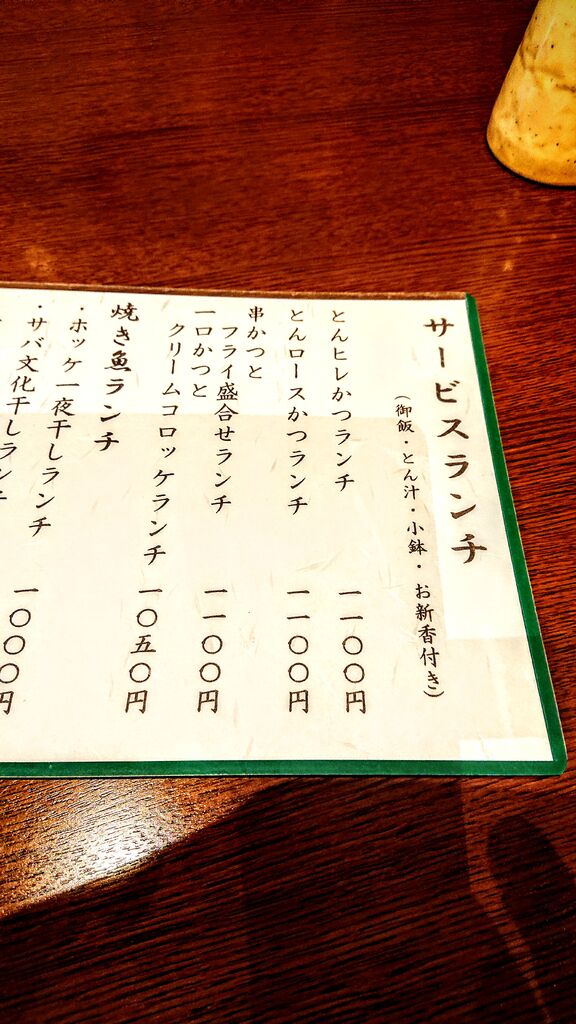 サービスランチ
（御飯・とん汁・小鉢・お新香付き）
とんヒレかつランチ 一一〇〇円
とんロースかつランチ 一一〇〇円
串かつと
フライ盛合せランチ 一一〇〇円
一口かつと
クリームコロッケランチ 一〇五〇円
焼き魚ランチ
・ホッケ一夜干しランチ
・サバ文化干しランチ 一〇〇〇円